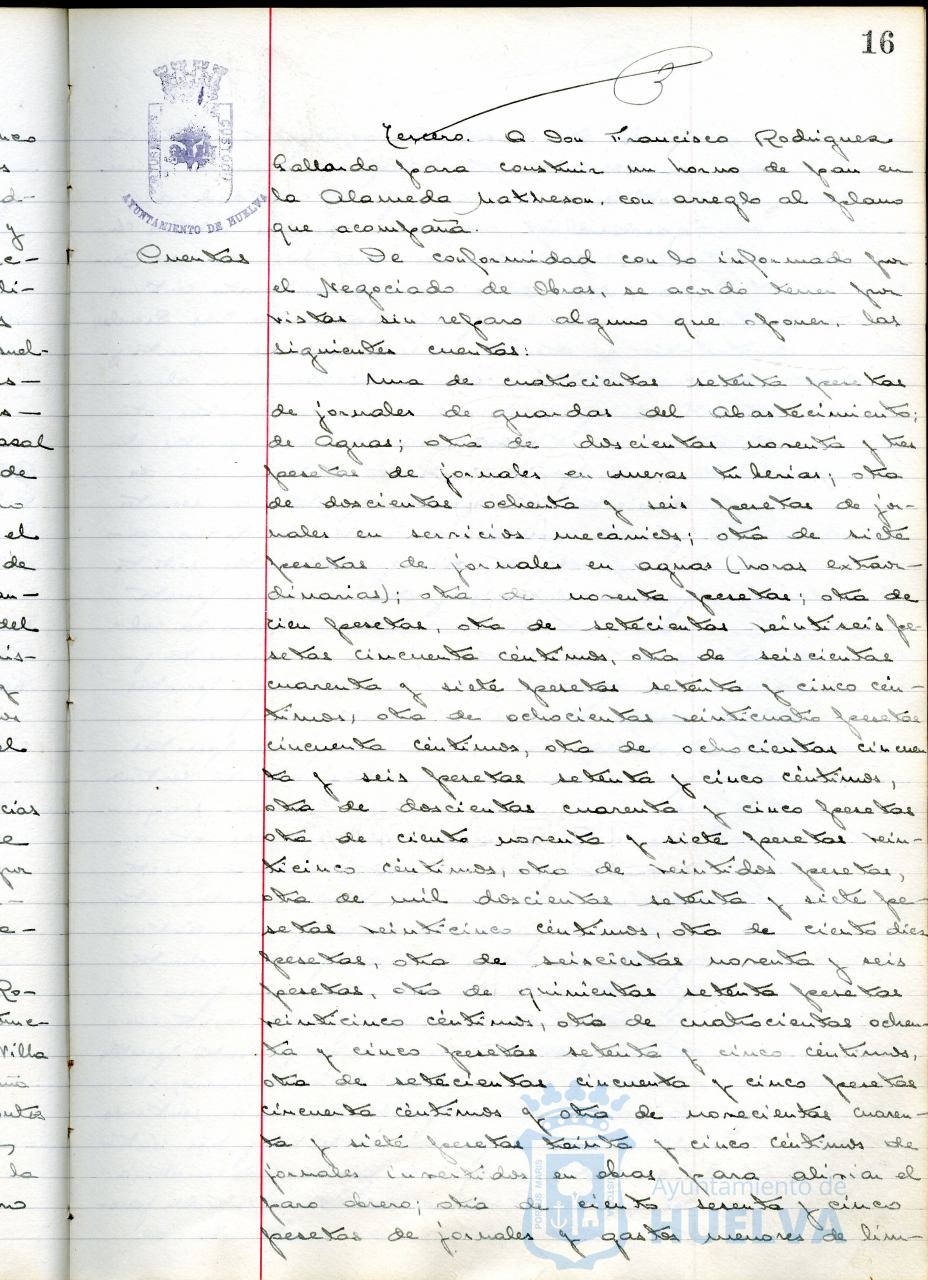 16
3
Tercero. A Don Francisco Rodriguez
Gallardo para construir un horno de pan en
la Alameda Matheson, con arreglo al plano
que acompaña.
AYUNTAMIENTO DE HUELVA
Cuentas
De conformidad con lo informado por
el Negociado de Obras, se acordó tener por
vistas sin reparo alguno que oponer, las
siguientes cuentas:
Una de cuatrocientas setenta pesetas
de jornales de guardas del Abastecimiento
de Aguas; otra de doscientas noventa y tres
pesetas de jornales en nuevas tuberias; otra
de doscientas ochenta y seis pesetas de jor-
nales en servicios mecánicos; otra de siete
pesetas de jornales en aguas (horas extraor-
dinarias); otra de noventa pesetas; otra de
cien pesetas, otra de setecientas veintiseis pe-
setas cincuenta céntimos, otra de seiscientas
cuarenta y siete pesetas setenta y cinco cén-
timos, otra de ochocientas veinticuatro pesetas
cincuenta céntimos, otra de ochocientas cincuen
ta y seis pesetas setenta y cinco céntimos,
otra de doscientas cuarenta y cinco pesetas
otra de ciento noventa y siete pesetas vein-
ticinco céntimos, otra de veintidos pesetas,
otra de mil doscientas setenta y siete pe-
setas veinticinco céntimos, otra de ciento diez
pesetas, otra de seiscientas noventa y seis
pesetas, otra de quinientas setenta pesetas
veinticinco céntimos, otra de cuatrocientas ochen-
ta y cinco pesetas setenta y cinco céntimos,
otra de setecientas cincuenta y cinco pesetas
cincuenta céntimos y otra de novecientas cuaren-
ta y siete pesetas treinta y cinco céntimos de
jornales invertidos en obras para aliviar el
paro obrero; otra de ciento sesenta y cinco
pesetas de jornales y gastos menores de lim-
PORTUS MARIS
Ayuntamiento de
HUELVA